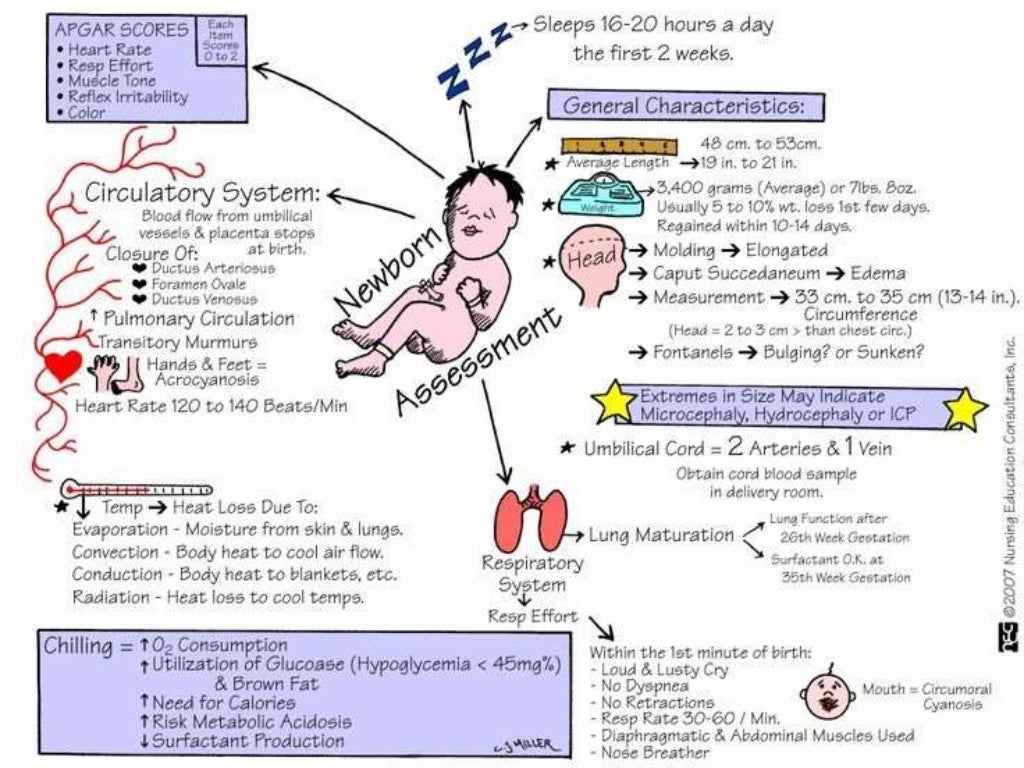 APGAR SCORES
Each
Item
Scores
0 to 2
• Heart Rate
• Resp Effort
• Muscle Tone
• Reflex Irritability
• Color
Sleeps 16-20 hours a day
the first 2 weeks.
Z Z Z
General Characteristics:
48 cm. to 53cm.
★ Average Length → 19 in. to 21 in.
★ Weight → 3,400 grams (Average) or 7lbs. 8oz.
Usually 5 to 10% wt. loss 1st few days.
Regained within 10-14 days.
★ Head → Molding → Elongated
→ Caput Succedaneum → Edema
→ Measurement → 33 cm. to 35 cm (13-14 in.).
Circumference
(Head = 2 to 3 cm > than chest circ.)
→ Fontanels → Bulging? or Sunken?
Extremes in Size May Indicate
Microcephaly, Hydrocephaly or ICP
★ Umbilical Cord = 2 Arteries & 1 Vein
Obtain cord blood sample
in delivery room.
Newborn
Assessment
Circulatory System:
Blood flow from umbilical
vessels & placenta stops
at birth.
Closure Of:
❤ Ductus Arteriosus
❤ Foramen Ovale
❤ Ductus Venosus
↑ Pulmonary Circulation
Transitory Murmurs
Hands & Feet =
Acrocyanosis
Heart Rate 120 to 140 Beats/Min
★ ↓ Temp → Heat Loss Due To:
Evaporation - Moisture from skin & lungs.
Convection - Body heat to cool air flow.
Conduction - Body heat to blankets, etc.
Radiation - Heat loss to cool temps.
Respiratory
System
↓
Resp Effort
→ Lung Maturation
Lung Function after
26th Week Gestation
Surfactant O.K. at
35th Week Gestation
Within the 1st minute of birth:
- Loud & Lusty Cry
- No Dyspnea
- No Retractions
- Resp Rate 30-60 / Min.
- Diaphragmatic & Abdominal Muscles Used
- Nose Breather
Mouth = Circumoral
Cyanosis
Chilling = ↑ O2 Consumption
↑ Utilization of Glucoase (Hypoglycemia < 45mg%)
& Brown Fat
↑ Need for Calories
↑ Risk Metabolic Acidosis
↓ Surfactant Production
CJMILLER
©2007 Nursing Education Consultants, Inc.